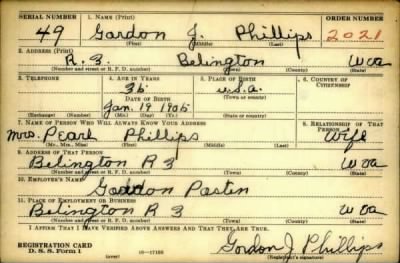 SERIAL NUMBER 1. NAME (Print) ORDER NUMBER
49 Gordon J. Phillips 2021
(First) (Middle) (Last)
2. ADDRESS (Print)
R. 3. Belington W va
(Number and street or R. F. D. number) (Town) (County) (State)
3. TELEPHONE 4. AGE IN YEARS 5. PLACE OF BIRTH 6. COUNTRY OF CITIZENSHIP
36 U.S.A.
DATE OF BIRTH (Town or county)
Jan. 19 1905
(Exchange) (Number) (Mo.) (Day) (Yr.) (State or country)
7. NAME OF PERSON WHO WILL ALWAYS KNOW YOUR ADDRESS 8. RELATIONSHIP OF THAT PERSON
Mrs. Pearl Phillips Wife
(Mr., Mrs., Miss) (First) (Middle) (Last)
9. ADDRESS OF THAT PERSON
Belington R 3 W va
(Number and street or R. F. D. number) (Town) (County) (State)
10. EMPLOYER'S NAME
11. PLACE OF EMPLOYMENT OR BUSINESS
Belington R 3 W va
(Number and street or R. F. D. number) (Town) (County) (State)
I AFFIRM THAT I HAVE VERIFIED ABOVE ANSWERS AND THAT THEY ARE TRUE.
REGISTRATION CARD
D. S. S. Form 1 (over) Gordon J Phillips
(Registrant's signature)